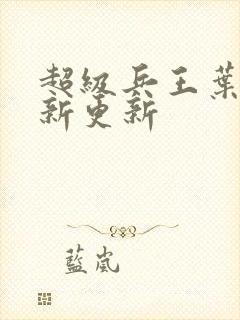 超級兵王葉
新更新
藍嵐